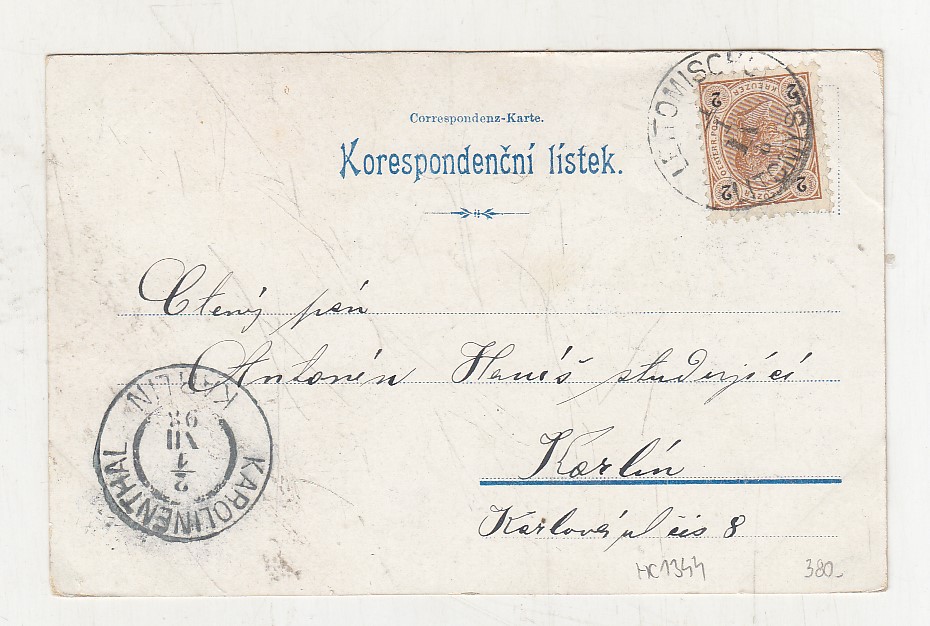 Correspondenz-Karte.
Korespondenční lístek.
LEITOMISCHL
2 KREUZER 2
2 2
Ctěný pán
Antonín Hanuš studující
Karlín
Karlova ul čís 8
KAROLINENTHAL KARLIN
2
1
VII
98
HC1344
380.-